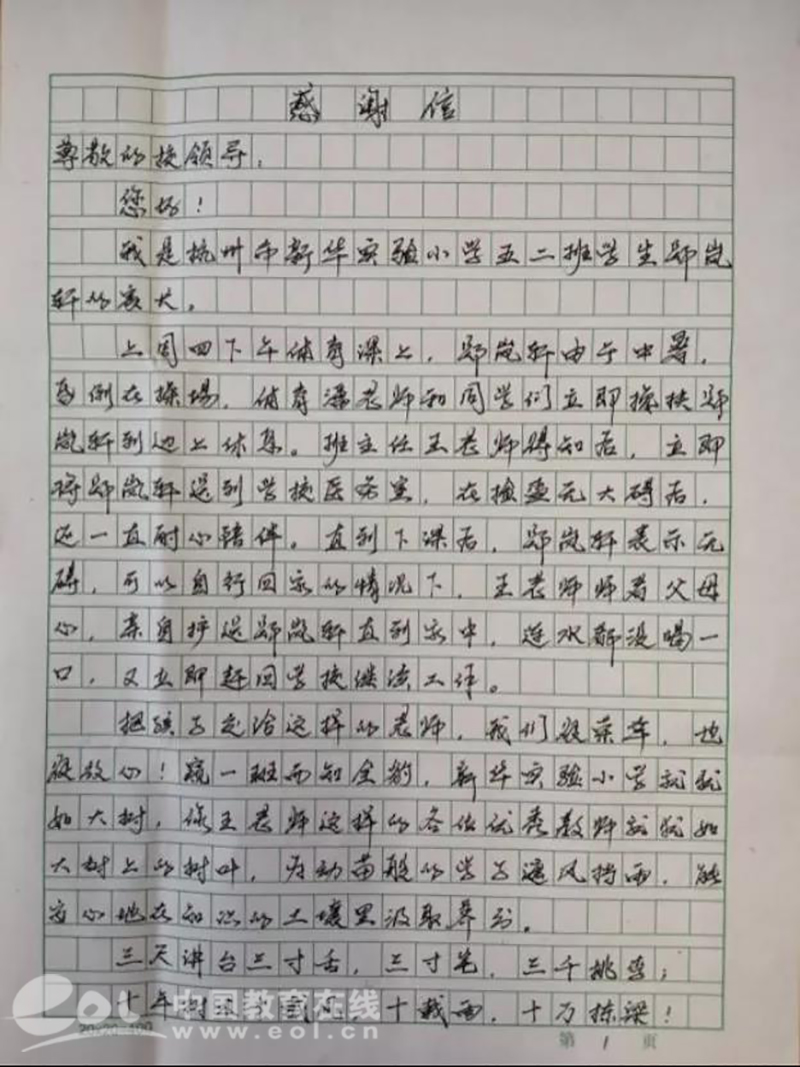 感谢信
尊敬的校领导：
您好！
我是杭州市新华实验小学五二班学生郑岚
轩的家长。
上周四下午体育课上，郑岚轩由于中暑，
昏倒在操场，体育潘老师和同学们立即搀扶郑
岚轩到边上休息。班主任王老师得知后，立即
将郑岚轩送到学校医务室，在检查无大碍后，
还一直耐心陪伴。直到下课后，郑岚轩表示无
碍，可以自行回家的情况下，王老师师者父母
心，亲自护送郑岚轩直到家中，连水都没喝一
口，又立即赶回学校继续工作。
把孩子交给这样的老师，我们很荣幸，也
很放心！窥一班而知全豹，新华实验小学就犹
如大树，像王老师这样的各位优秀教师就犹如
大树上的树叶，为幼苗般的学子遮风挡雨，能
安心地在知识的土壤里汲取养分。
三尺讲台三寸舌，三寸笔，三千桃李；
十年树木十载风，十载雨，十万栋梁！
eol 中国教育在线
www.eol.cn
第 1 页